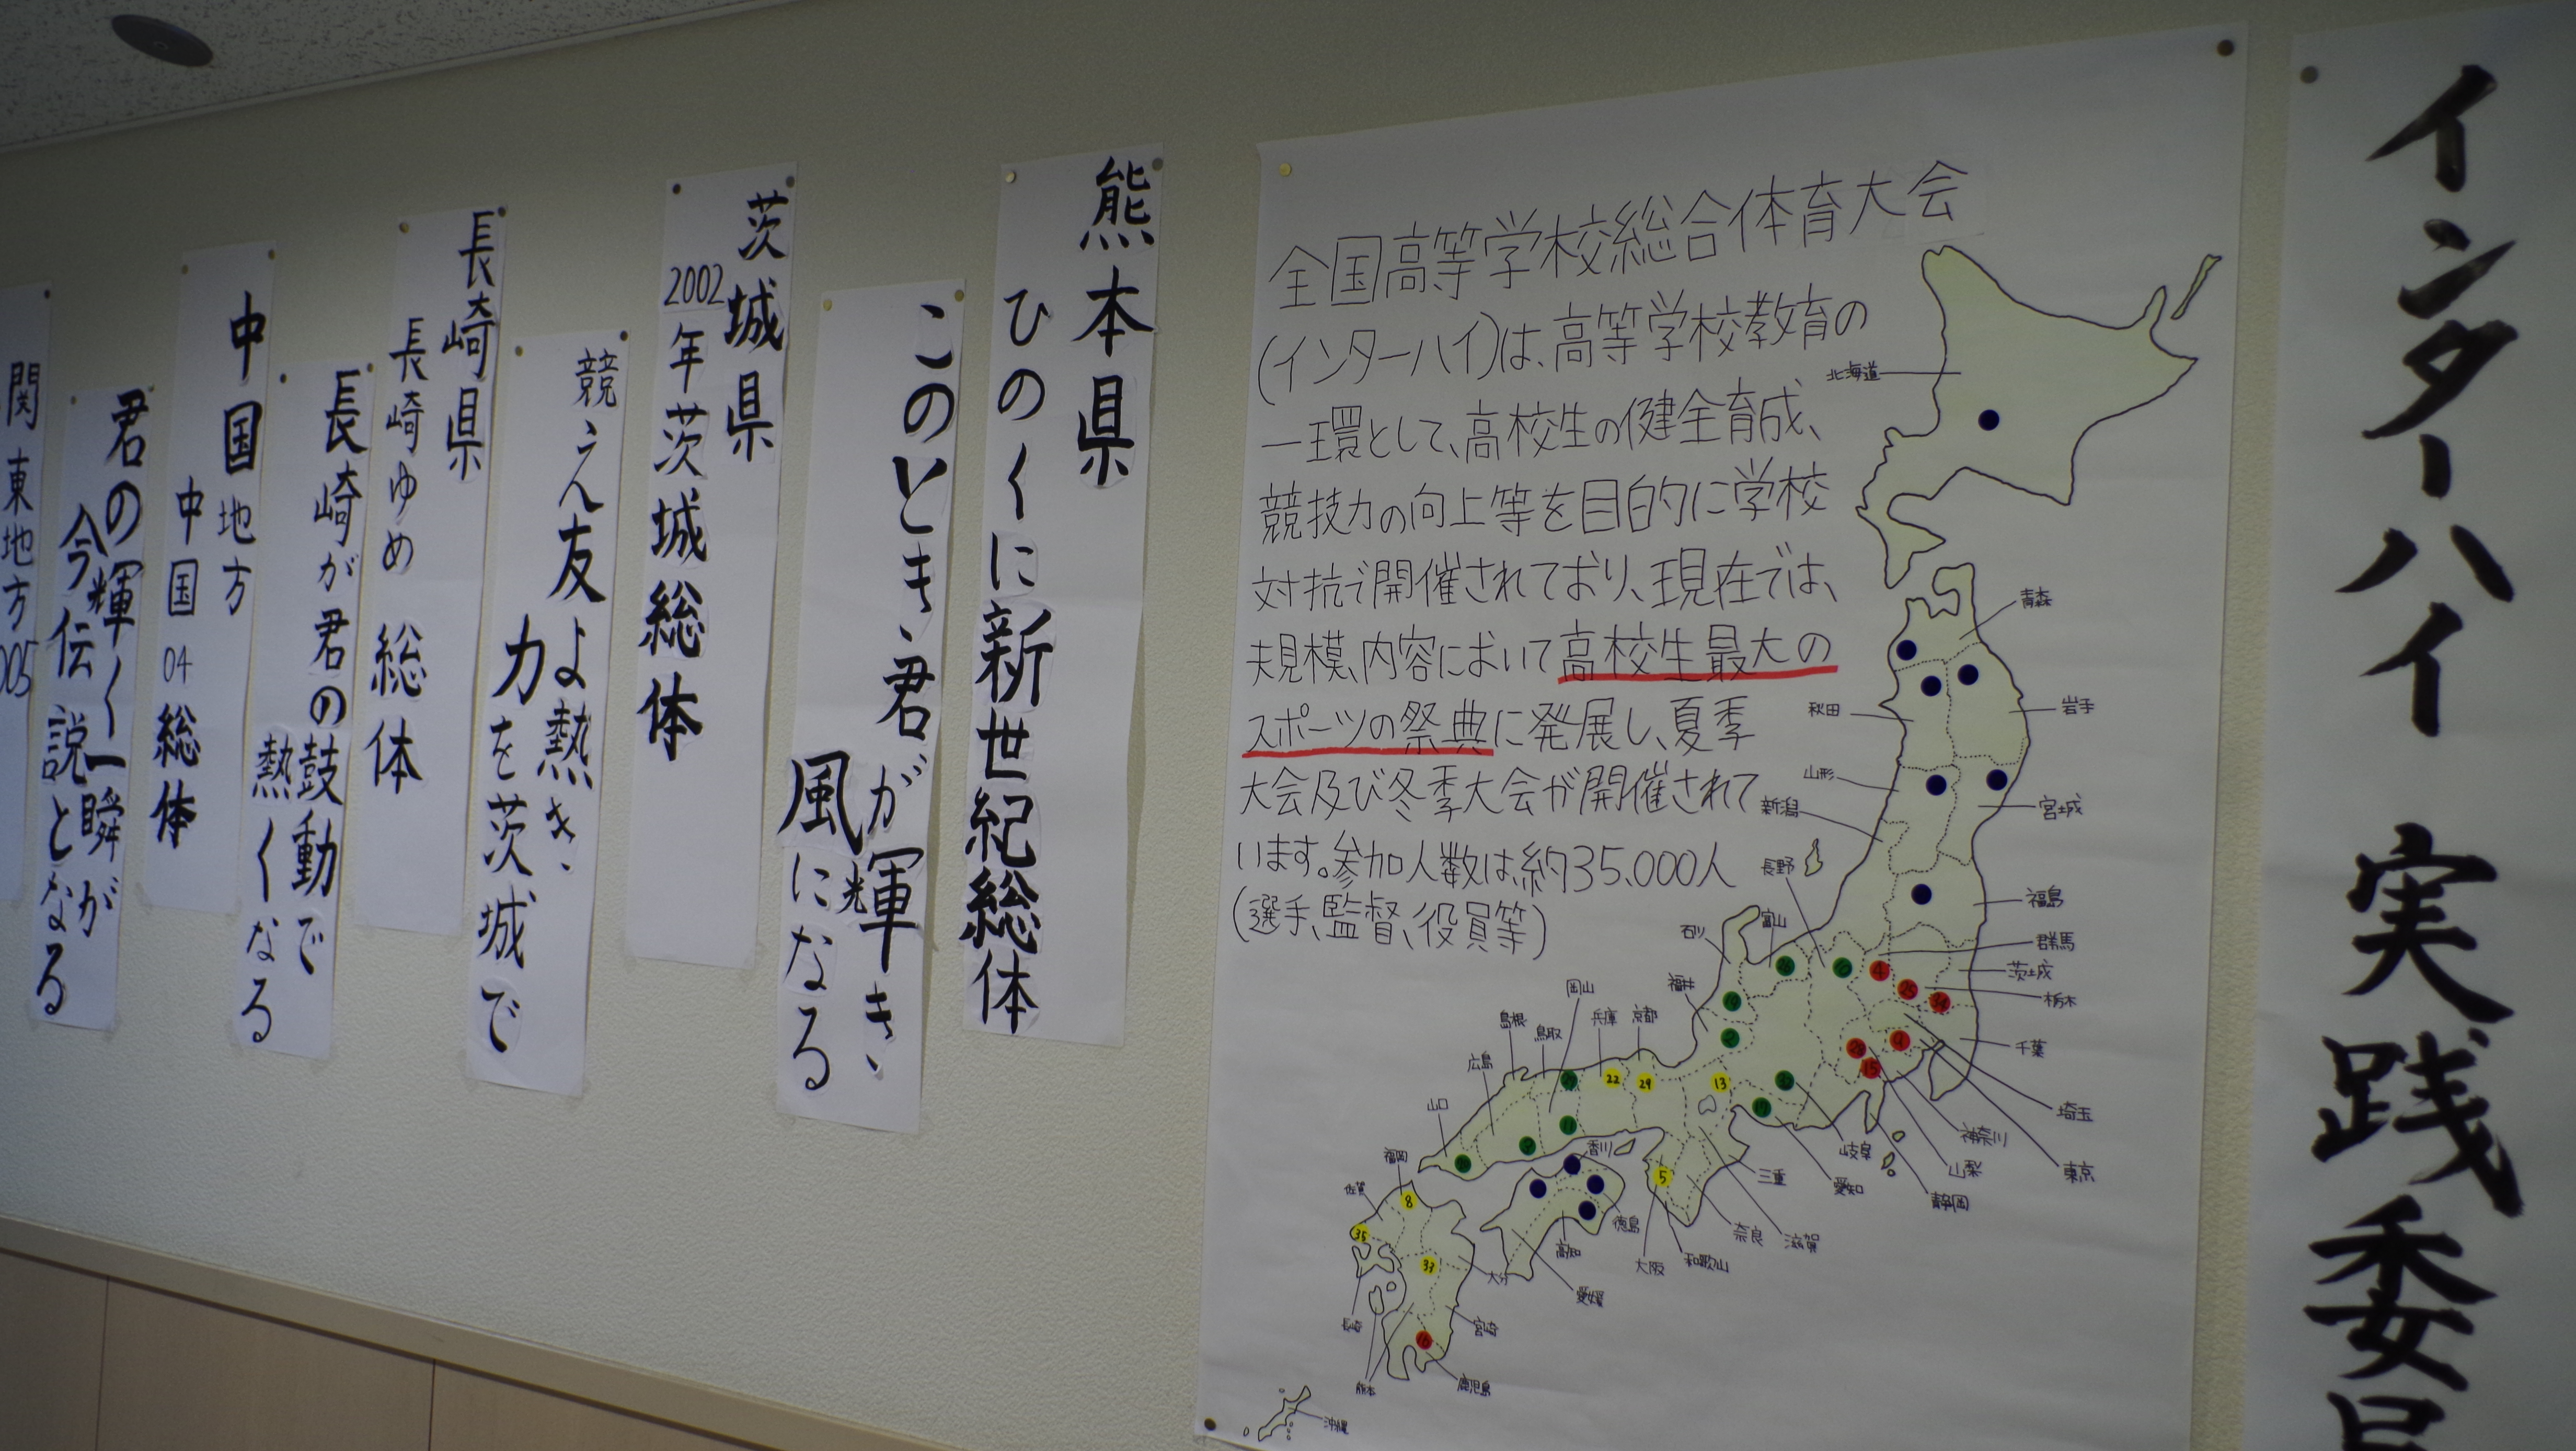 インターハイ 実践委員
全国高等学校総合体育大会
(インターハイ)は、高等学校教育の
一環として、高校生の健全育成、
競技力の向上等を目的に学校
対抗で開催されており、現在では、
規模、内容において高校生最大の
スポーツの祭典に発展し、夏季
大会及び冬季大会が開催されて
います。参加人数は約35,000人
(選手、監督、役員等)
北海道
青森
秋田
岩手
山形
新潟
宮城
長野
福島
富山
石川
群馬
茨城
栃木
福井
岡山
島根
鳥取
兵庫
京都
千葉
広島
4
25
9
15
22
29
13
山口
埼玉
神奈川
岐阜
山梨
東京
香川
福岡
三重
愛知
静岡
佐賀
8
5
徳島
奈良
滋賀
高知
大阪
和歌山
35
33
大分
愛媛
宮崎
熊本
鹿児島
沖縄
熊本県
ひのくに新世紀総体
このとき、君が輝き、
風になる
光
茨城県
2002年茨城総体
競え友よ熱き、
力を茨城で
長崎県
長崎ゆめ総体
長崎が君の鼓動で
熱くなる
中国地方
中国04総体
君の輝く一瞬が
今伝説となる
関東地方